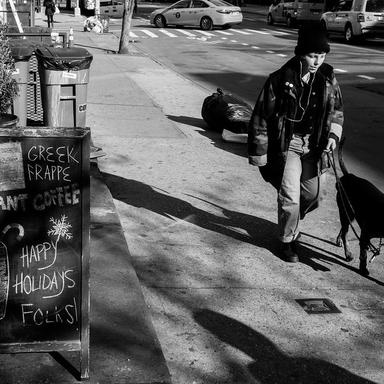 GREEK
FRAPPE
ANT COFFEE
HAPPY
HOLIDAYS
FOLKS!